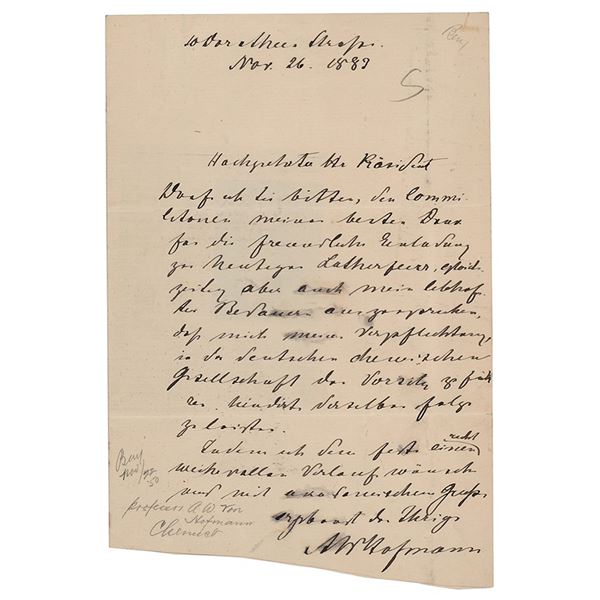 10 Dorotheen Strasse.
Nov. 26. 1883
Hochgeehrter Hr Präsident
Darf ich Sie bitten, den Commi-
litonen meinen besten Dank
für die freundliche Einladung
zur heutigen Lutherfeier, gleich-
zeitig aber auch mein lebhaf-
tes Bedauern auszusprechen,
daß mich meine Verpflichtung,
in der deutschen chemischen
Gesellschaft den Vorsitz zu füh-
ren hindert derselben Folge
zu leisten.
Indem ich dem Feste einen recht
weihevollen Verlauf wünsche
und mit academischem Gruss
ergebenst der Ihrige
AWHofmann
Professor A W von
Hofmann
Chemist